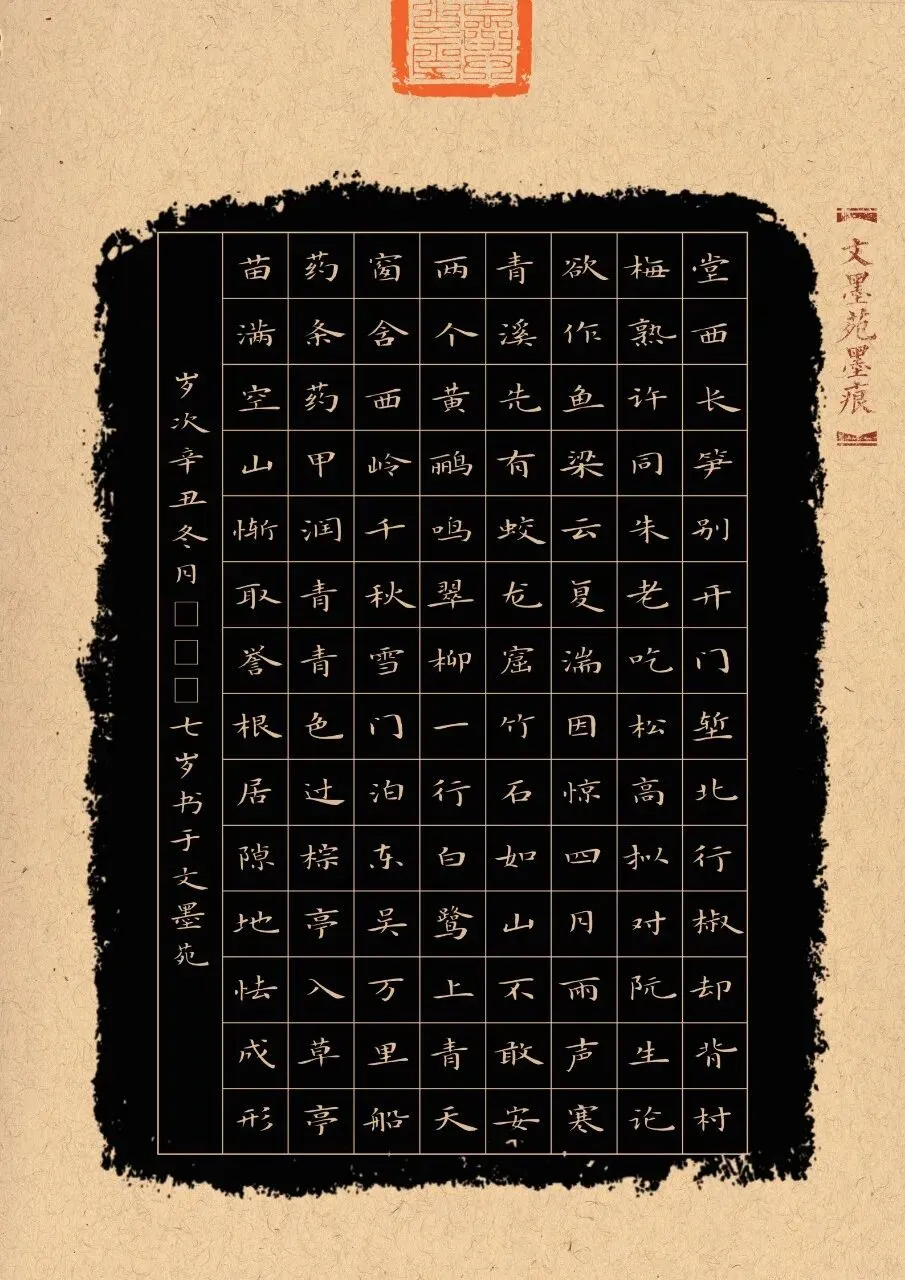 【文墨苑墨痕】
堂西长笋别开门堑北行椒却背村
梅熟许同朱老吃松高拟对阮生论
欲作鱼梁云复湍因惊四月雨声寒
青溪先有蛟龙窟竹石如山不敢安
两个黄鹂鸣翠柳一行白鹭上青天
窗含西岭千秋雪门泊东吴万里船
药条药甲润青青色过棕亭入草亭
苗满空山惭取誉根居隙地怯成形
岁次辛丑冬月□□□七岁书于文墨苑